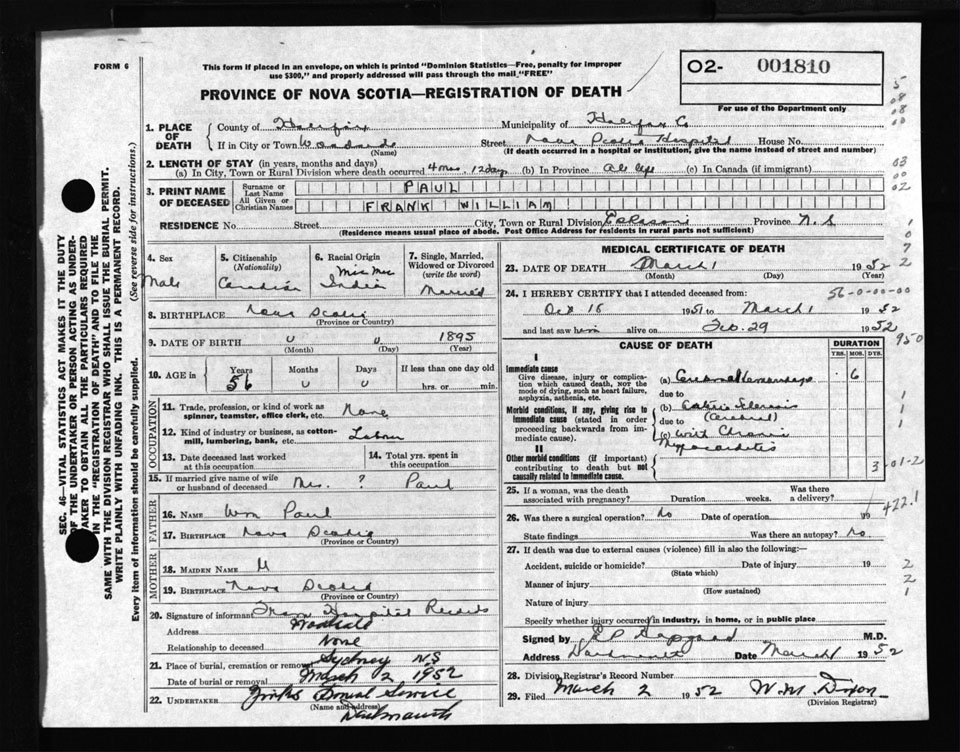 FORM 6
This form if placed in an envelope, on which is printed "Dominion Statistics—Free, penalty for improper
use $300," and properly addressed will pass through the mail "FREE"
PROVINCE OF NOVA SCOTIA—REGISTRATION OF DEATH
O2- 001810
For use of the Department only
1. PLACE OF DEATH
County of Halifax Municipality of Halifax Co
If in City or Town Woodside Street Hospital House No.
(Name) (If death occurred in a hospital or institution, give the name instead of street and number)
2. LENGTH OF STAY (in years, months and days)
(a) In City, Town or Rural Division where death occurred 4 mos. 12 days (b) In Province All life (c) In Canada (if immigrant)
3. PRINT NAME OF DECEASED
Surname or Last Name PAUL
All Given or Christian Names FRANK WILLIAM
RESIDENCE No. Street City, Town or Rural Division Eskasoni Province N.S
(Residence means usual place of abode. Post Office Address for residents in rural parts not sufficient)
4. Sex Male
5. Citizenship (Nationality) Canadian
6. Racial Origin Mic Mac Indian
7. Single, Married, Widowed or Divorced (write the word) Married
8. BIRTHPLACE Nova Scotia
(Province or Country)
9. DATE OF BIRTH U U 1895
(Month) (Day) (Year)
10. AGE in Years Months Days If less than one day old
56 U U hrs. or min.
OCCUPATION
11. Trade, profession, or kind of work as spinner, teamster, office clerk, etc. None
12. Kind of industry or business, as cotton-mill, lumbering, bank, etc. Labour
13. Date deceased last worked at this occupation
14. Total yrs. spent in this occupation
15. If married give name of wife or husband of deceased Mrs. ? Paul
FATHER
16. NAME Wm Paul
17. BIRTHPLACE Nova Scotia
(Province or Country)
MOTHER
18. MAIDEN NAME U
19. BIRTHPLACE Nova Scotia
(Province or Country)
20. Signature of informant From Hospital Records
Address Woodside
Relationship to deceased None
21. Place of burial, cremation or removal Sydney N.S
Date of burial or removal March 2 1952
22. UNDERTAKER Service
(Name and address) Dartmouth
MEDICAL CERTIFICATE OF DEATH
23. DATE OF DEATH March 1 1952
(Month) (Day) (Year)
24. I HEREBY CERTIFY that I attended deceased from:
Oct 18 1951 to March 1 1952
and last saw him alive on Feb. 29 1952
56-0-00-00
950
CAUSE OF DEATH
DURATION
YRS. MOS. DYS.
I
Immediate cause
Give disease, injury or complication which caused death, not the mode of dying, such as heart failure, asphyxia, asthenia, etc.
(a) Cerebral Hemorrhage 6
due to
Morbid conditions, if any, giving rise to immediate cause (stated in order proceeding backwards from immediate cause).
(b) Sclerosis
due to
(c) with Chronic
Myocarditis
II
Other morbid conditions (if important) contributing to death but not causally related to immediate cause.
3-01-2
25. If a woman, was the death associated with pregnancy? Duration weeks. Was there a delivery?
422.1
26. Was there a surgical operation? No Date of operation 19
State findings Was there an autopsy? No.
27. If death was due to external causes (violence) fill in also the following:—
Accident, suicide or homicide? Date of injury 19
(State which)
Manner of injury
(How sustained)
Nature of injury
Specify whether injury occurred in industry, in home, or in public place
Signed by M.D.
Address Dartmouth Date March 1 1952
28. Division Registrar's Record Number
29. Filed March 2 1952 W. M. Dixon
(Division Registrar)
SEC. 46—VITAL STATISTICS ACT MAKES IT THE DUTY
OF THE UNDERTAKER OR PERSON ACTING AS UNDER-
TAKER TO OBTAIN ALL THE PARTICULARS REQUIRED
IN THE "REGISTRATION OF DEATH" AND TO FILE THE
SAME WITH THE DIVISION REGISTRAR WHO SHALL ISSUE THE BURIAL PERMIT.
WRITE PLAINLY WITH UNFADING INK. THIS IS A PERMANENT RECORD.
Every item of information should be carefully supplied. (See reverse side for instructions.)